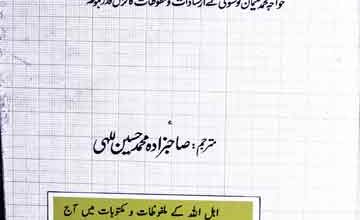 خواجہ محمد سلیمان تونسوی کے ارشادات و ملفوظات کا گراں قدر مجموعہ
مترجم: صاحبزادہ محمد حسین للہی
اہل اللہ کے ملفوظات و مکتوبات میں آج